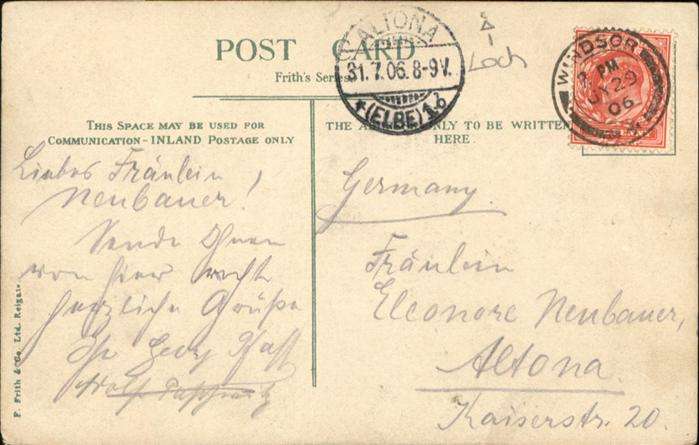 POST CARD
Frith's Series
ALTONA
31.7.06.8-9V.
*(ELBE)1b
Loch
WINDSOR
PM
JY 29
06
THIS SPACE MAY BE USED FOR
COMMUNICATION - INLAND POSTAGE ONLY
THE A ONLY TO BE WRITTEN
HERE.
Liebes Fräulein
Neubauer!
Sende Ihnen
von hier recht
herzliche Grüße
Ihr Georg
Germany.
Fräulein
Eleonore Neubauer,
Altona.
Kaiserstr. 20.
F. Frith & Co. Ltd. Reigate